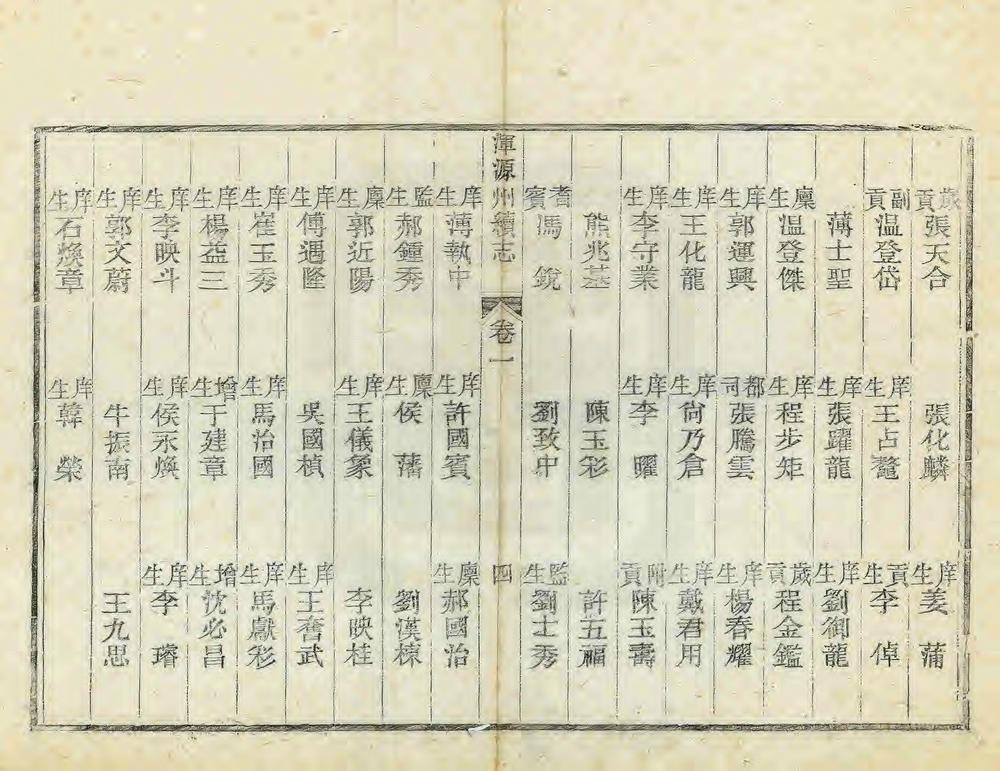 歲貢張天合 張化麟 庠生姜蒲
副貢溫登岱 庠生王占鼇 貢生李倬
薄士聖 庠生張躍龍 庠生劉御龍
廩生溫登傑 庠生程步矩 歲貢程金鑑
庠生郭運興 都司張騰雲 庠生楊春耀
庠生王化龍 庠生尙乃倉 庠生戴君用
庠生李守業 庠生李曜 附貢陳玉壽
熊兆基 陳玉彩 許五福
耆賓馮銳 劉致中 監生劉士秀
渾源州續志 卷一 四
庠生薄執中 庠生許國賓 廩生郝國治
監生郝鍾秀 廩生侯藩 劉漢棟
廩生郭近陽 庠生王儀象 李映桂
庠生傅遇隆 吳國楨 庠生王奮武
庠生崔玉秀 庠生馬治國 庠生馬獻彩
庠生楊益三 增生于建章 增生沈必昌
庠生李映斗 庠生侯永煥 庠生李璿
庠生郭文蔚 牛振南 王九思
庠生石煥章 庠生韓榮